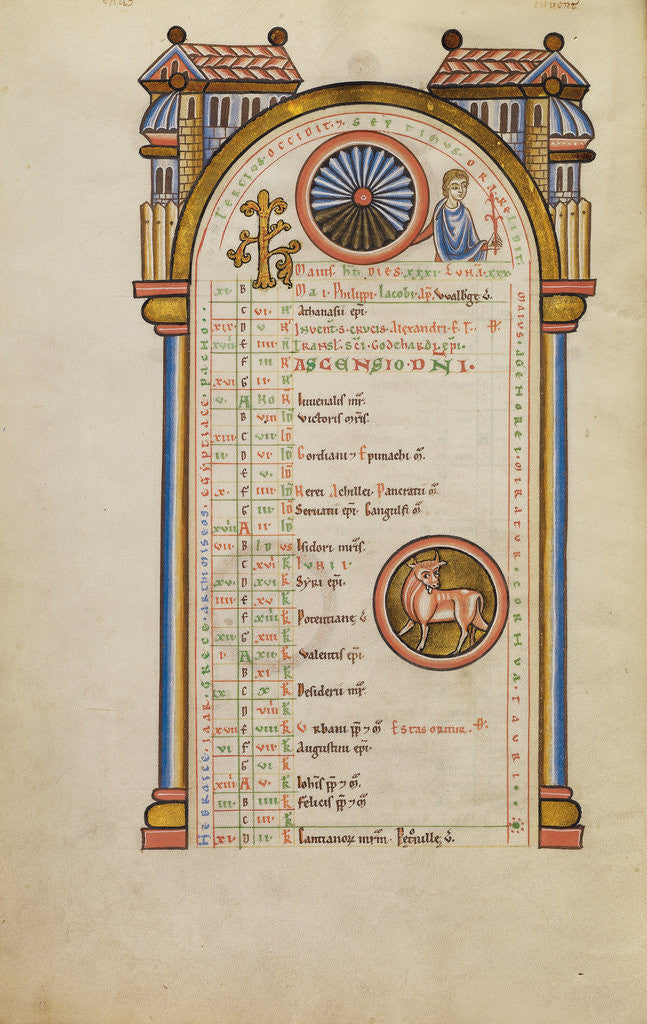 TERCIUS OCCIDIT ⁊ SEPTIMUS ORA RELIDIT
Maius. hт DIES. XXXI. LUNA. XXX.
xi. B Mai. Philippi. Iacobi. ap. Walbᵍe v̄.
C vi. N Athanasii epi.
xix. D v. N Invent. s. crucis Alexandri.
viii. E iiii. N Transl. sci. Godehardi. epi.
F iii. N ASCENSIO. DNI.
xvi. G ii. N
v. A NO N Iuvenalis mr̄.
B viii ID Victoris mr̄is.
xiii. C vii. ID
ii. D vi. ID Gordiani ⁊ Epimachi m̄.
E v. ID
x. F iiii. ID Nerei Achillei. Pancratii m̄
G iii. ID Servatii epi. Gangulfi m̄
xviii A ii. ID
vii. B ID US Isidori mr̄is.
C xvii K IUNII.
xv. D xvi K Syri epi.
iiii. E xv. K
F xiiii K Potentiane v̄
xii. G xiii. K
i A xii. K Valentis epi.
B xi. K
ix C x K Desiderii mr̄.
D viiii K
xvii E viii K Urbani pp̄ ⁊ m̄ Estas oritur.
vi F vii. K Augustini epi.
G vi K
xiiii A v. K Iohis pp̄ ⁊ m̄.
iii. B iiii. K Felicis pp̄ ⁊ m̄
C iii. K
xi. D ii. K Cantianoꝝ mr̄m. Petronille v̄.
HEBRAICE. IAAR. GRECE. ARTHIMISEOS. EGYPTIACE. PACHO.
MAIUS. AGENOREI. MIRATUR. CORNUA. TAURI.